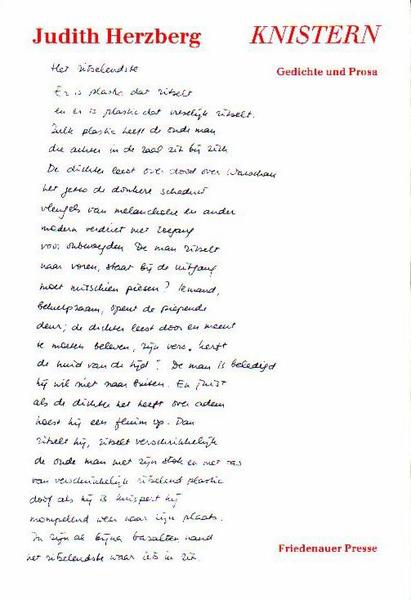 Judith Herzberg KNISTERN
Gedichte und Prosa
Het ritselendste
Er is plastic dat ritselt
en er is plastic dat vreselijk ritselt.
Zulk plastic heeft de oude man
die achter in de zaal zit bij zich.
De dichter leest over dood over Warschau
het getto de donkere schaduw
vleugels van melancholie en ander
modern verdriet met toegang
voor onbevoegden De man ritselt
naar voren, staat bij de uitgang
moet misschien piesen? Iemand,
behulpzaam, opent de piepende
deur; de dichter leest door en meent
te moeten beleven, zijn vers, heeft
de huid van de tijd! De man is beledigd
hij wil niet naar buiten. En juist
als de dichter het heeft over adem
hoest hij een fluim op. Dan
ritselt hij, ritselt verschrikkelijk
de oude man met zijn stok en met tas
van verschrikkelijk ritselend plastic
doof als hij is knispert hij
mompelend weer naar zijn plaats.
In zijn al bijna basalten hand
het ritselendste waar iets in zit.
Friedenauer Presse